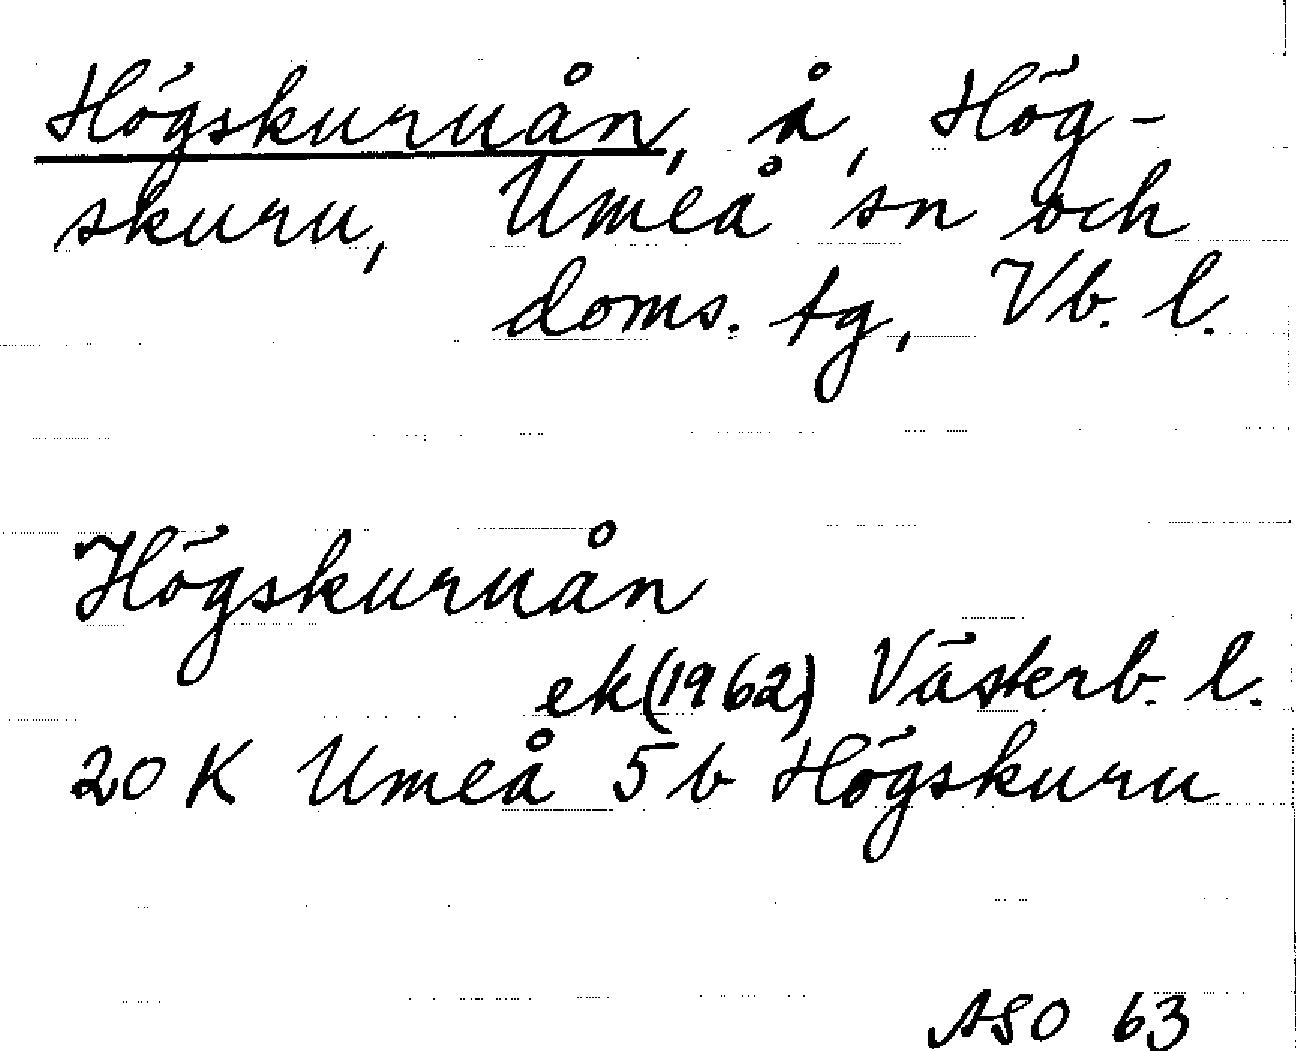 Högskuruån, å, Hög-
skuru, Umeå sn och
doms. tg, Vb. l.
Högskuruån
ek(1962) Västerb. l.
20 K Umeå 5b Högskuru
ASO 63